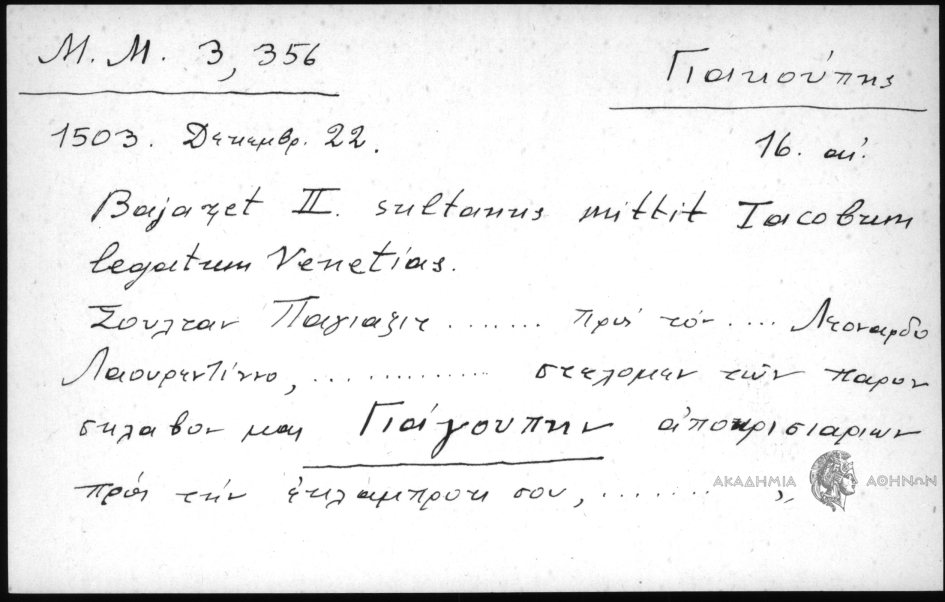 Μ. Μ. 3, 356
Γιακούπης
1503. Δεκεμβρ. 22.
16. αἰ.
Bajazet II. sultanus mittit Iacobum
legatum Venetias.
Σουλταν Παγιαξιτ ....... πρὸς τὸν .... Λεοναρδο
Λαουρεντίννο, .............. στελομεν τῶν παρον
σκλαβον μας Γιάγουπην ἀποκρισιαριων
πρὸς τὴν ἐκλάμπροτι σου, ........ ,,
ΑΚΑΔΗΜΙΑ ΑΘΗΝΩΝ